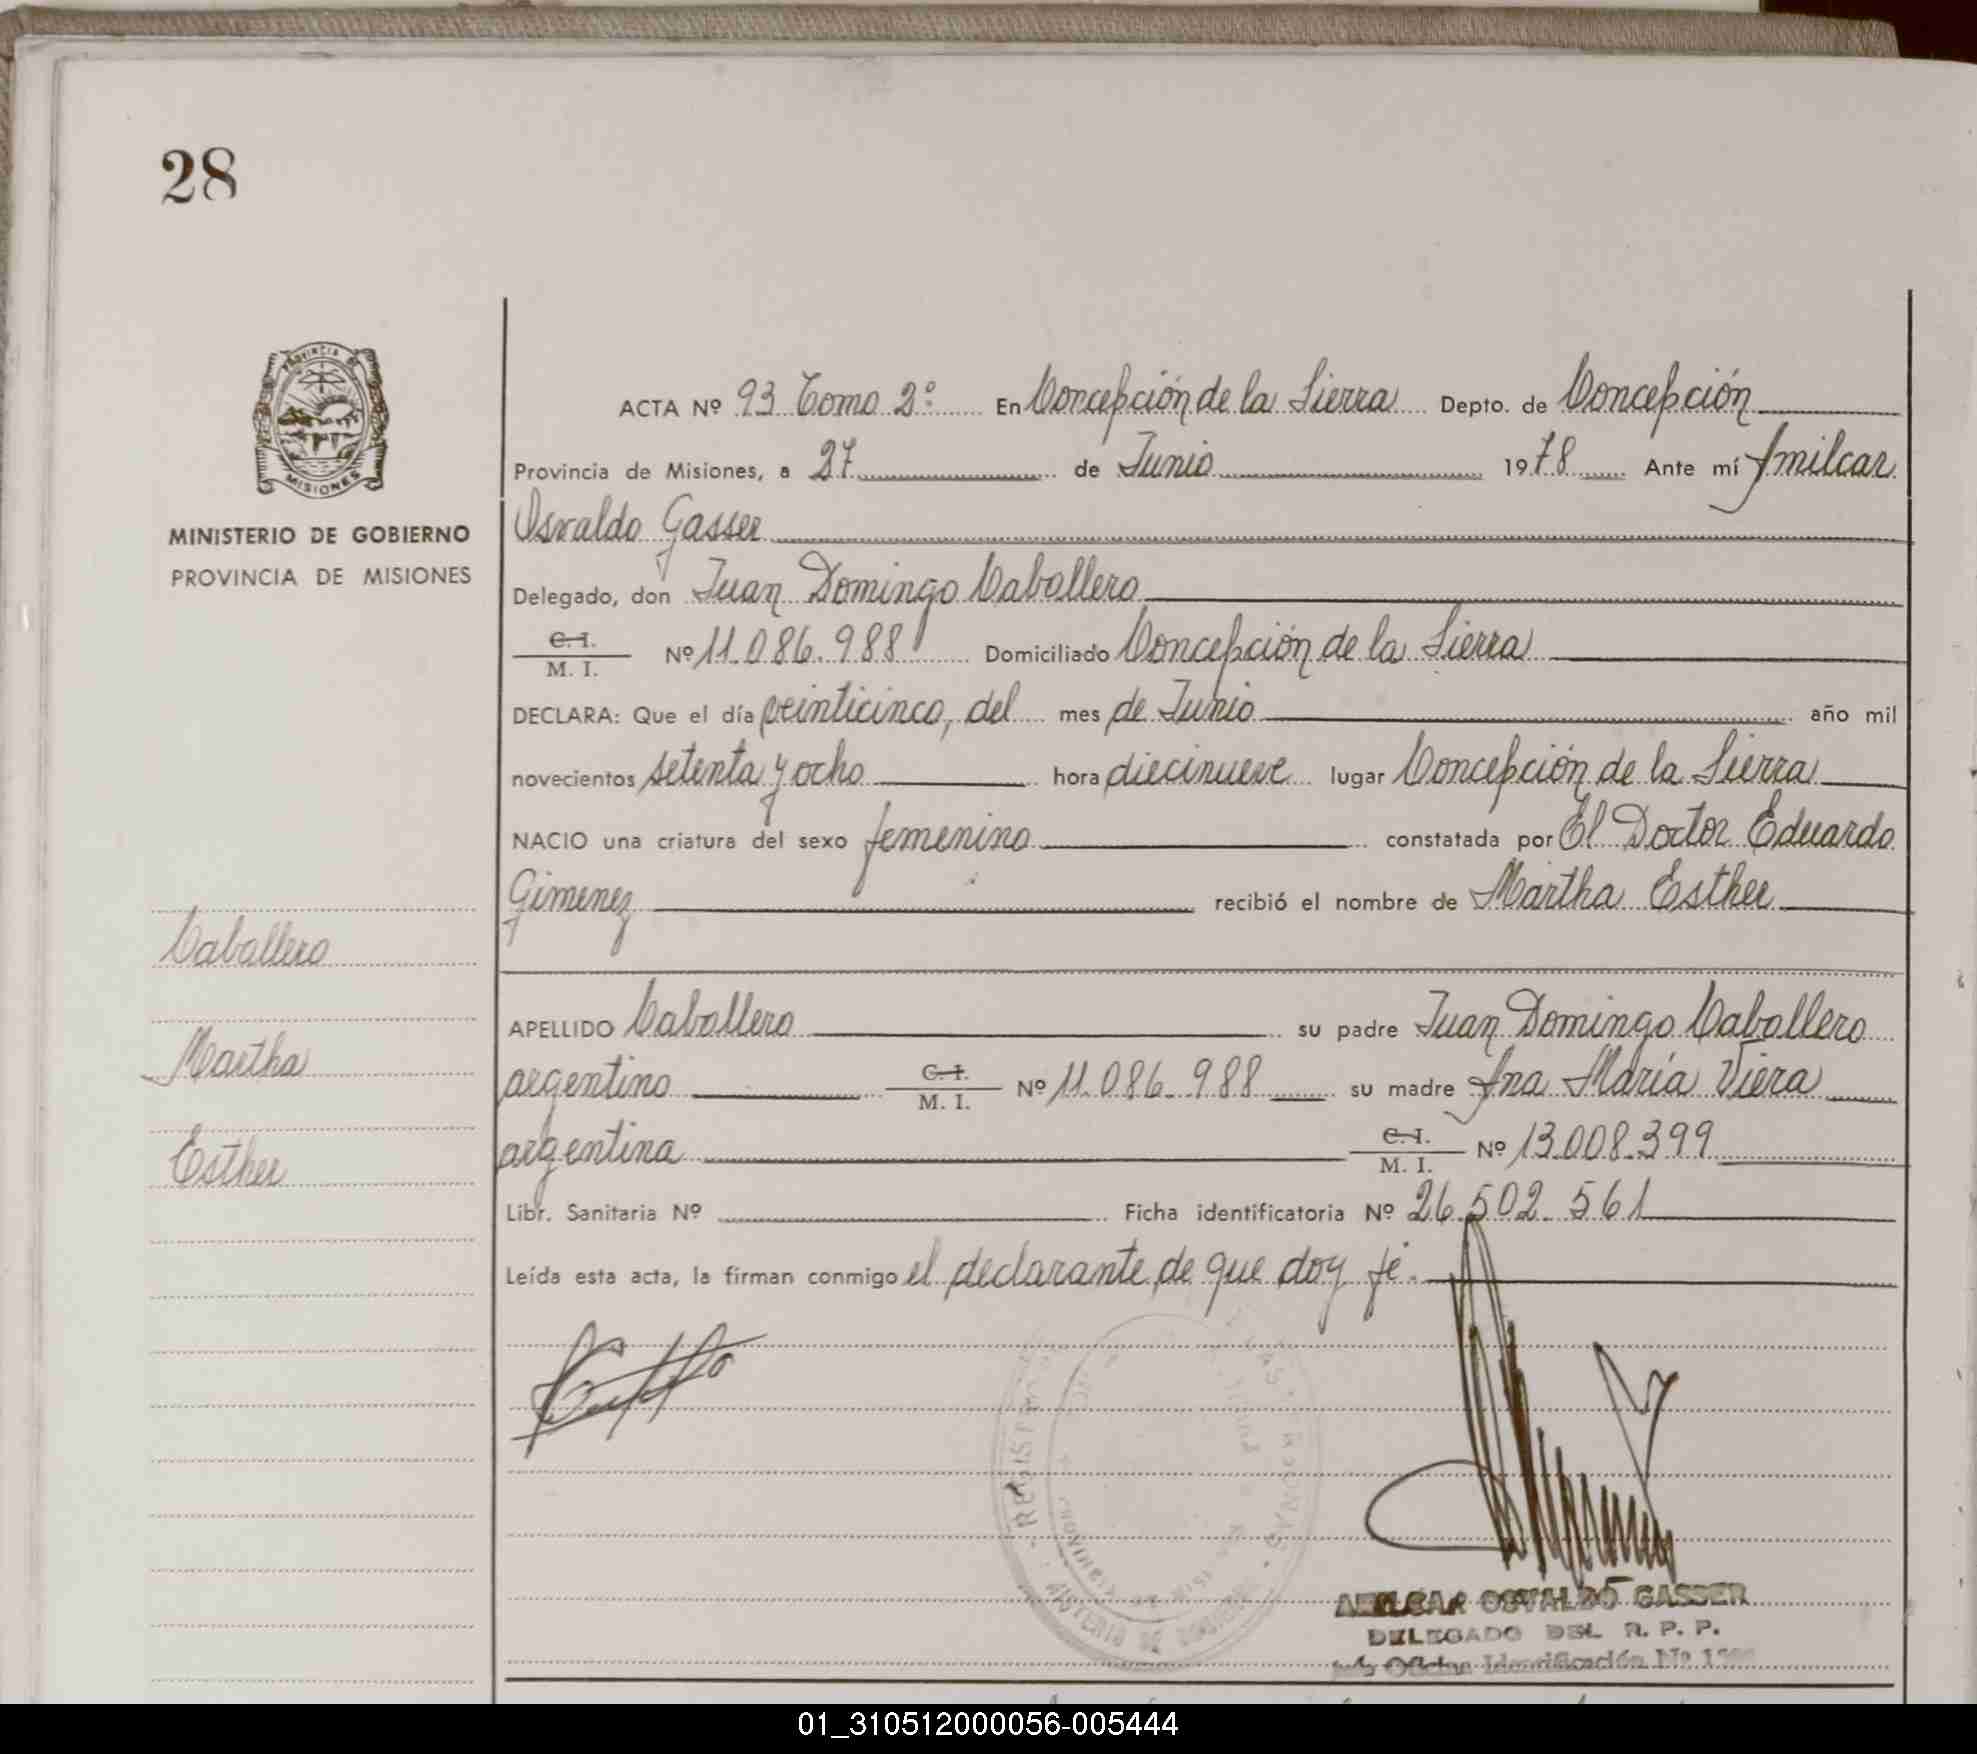 28
PROVINCIA DE
MISIONES
MINISTERIO DE GOBIERNO
PROVINCIA DE MISIONES
Caballero
Martha
Esther
ACTA Nº 93 Tomo 2º En Concepción de la Sierra Depto. de Concepción
Provincia de Misiones, a 27 de Junio 1978 Ante mí Amilcar
Osvaldo Gasser
Delegado, don Juan Domingo Caballero
C. I.
M. I. Nº 11.086.988 Domiciliado Concepción de la Sierra
DECLARA: Que el día veinticinco, del mes de Junio año mil
novecientos setenta y ocho hora diecinueve lugar Concepción de la Sierra
NACIO una criatura del sexo femenino constatada por El Doctor Eduardo
Gimenez recibió el nombre de Martha Esther
APELLIDO Caballero su padre Juan Domingo Caballero
argentino C. I. M. I. Nº 11.086.988 su madre Ana María Viera
argentina C. I. M. I. Nº 13.008.399
Libr. Sanitaria Nº Ficha identificatoria Nº 26.502.561
Leída esta acta, la firman conmigo el declarante de que doy fé.
AMILCAR OSVALDO GASSER
DELEGADO DEL R. P. P.
Oficina Identificación Nº
01_310512000056-005444